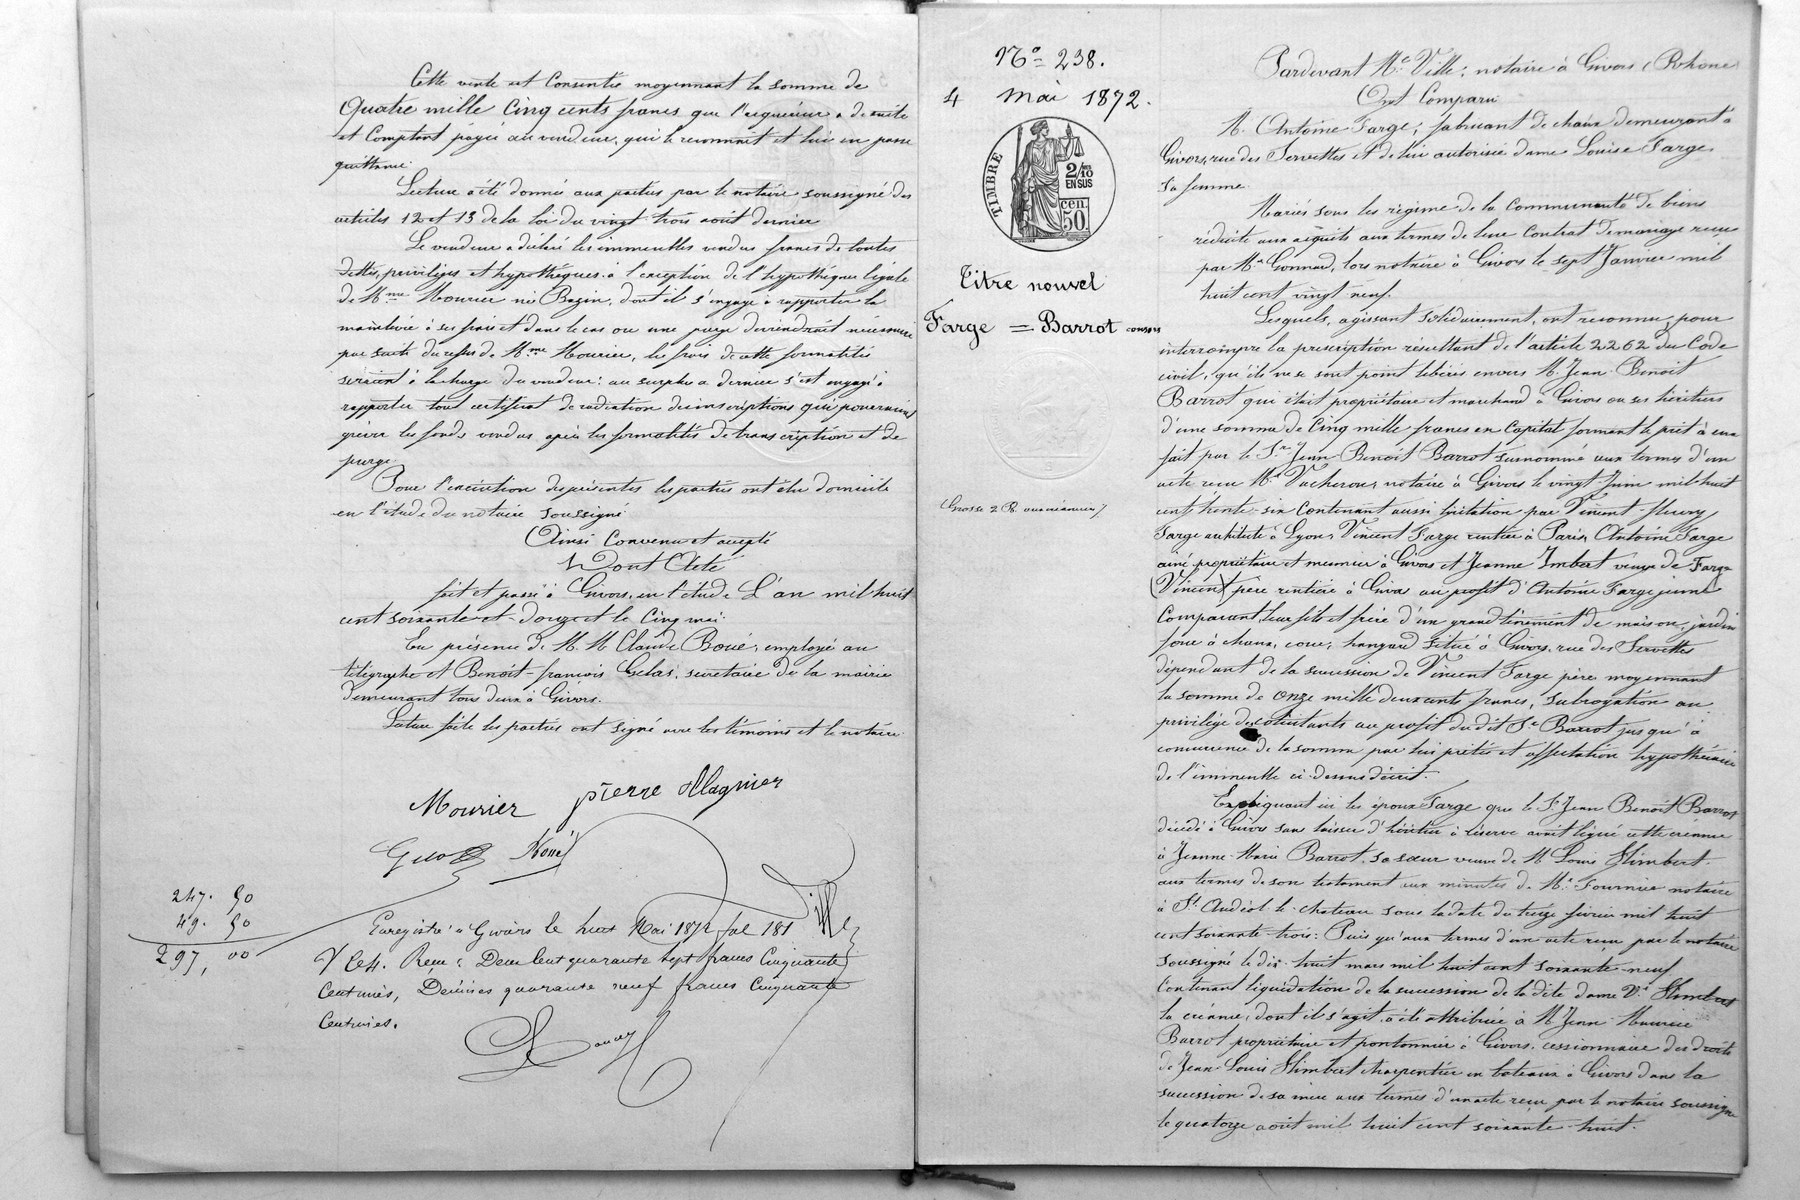 Cette vente est Consentie moyennant la somme de
Quatre mille Cinq cents francs que l'acquéreur a de suite
et Comptant payée au vendeur, qui le reconnait et lui en passe
quittance.
Lecture a été donnée aux parties par le notaire soussigné des
articles 12 et 13 de la loi du vingt trois août dernier
Le vendeur a déclaré les immeubles vendus francs de toutes
dettes, privilèges et hypothèques à l'exception de l'hypothèque légale
de Mme Mourier née Bazin, dont il s'engage à rapporter la
mainlevée à ses frais et dans le cas ou une purge deviendrait nécessaire
par suite du refus de Mme Mourier, les frais de cette formalité
seraient à la charge du vendeur: au surplus ce dernier s'est engagé à
rapporter tout certificat de radiation des inscriptions qui pourraient
grever les fonds vendus après les formalités de transcription et de
purge.
Pour l'exécution des présentes les parties ont élu domicile
en l'étude du notaire soussigné
Ainsi Convenu et accepté
Dont Acte
fait et passé à Givors, en l'étude L'an mil huit
cent soixante et douze et le Cinq mai.
En présence de M. M Claude Boué, employé au
télégraphe et Benoît-françois Gelas, secrétaire de la mairie
demeurant tous deux à Givors.
Lecture faite les parties ont signé avec les témoins et le notaire
Mourier pierre Magnier
Boué
Ville
247. 50
49. 50
297, 00
Enregistré à Givors le huit Mai 1872 fol 181
V C4. Reçu: Deux Cent quarante sept francs Cinquante
Centimes, Décimes quarante neuf francs Cinquante
Centimes.
No 238.
4 mai 1872.
TIMBRE
2/10
EN SUS
cen.
50
Titre nouvel
Farge = Barrot consors
Grosse 2 R.
Pardevant Me Ville, notaire à Givors (Rhône)
Ont Comparu
M. Antoine Farge, fabricant de chaux demeurant à
Givors, rue des Servettes et de lui autorisée dame Louise Farge
sa femme.
Mariés sous le régime de la Communauté de biens
réduite aux acquêts aux termes de leur Contrat de mariage reçu
par Me Gonnard, lors notaire à Givors le sept Janvier mil
huit cent vingt neuf.
Lesquels, agissant solidairement, ont reconnu, pour
interrompre la prescription résultant de l'article 2262 du Code
civil, qu'ils ne se sont point libérés envers M. Jean Benoit
Barrot qui était propriétaire et marchand à Givors ou ses héritiers
d'une somme de Cinq mille francs en Capital formant le prêt à eux
fait par le Sr Jean-Benoit Barrot surnommé aux termes d'un
acte reçu Me Vacheron, notaire à Givors le vingt Juin mil huit
cent trente-six Contenant aussi licitation par Vincent-fleury
Farge architecte à Lyon, Vincent Farge rentier à Paris, Antoine Farge
ainé propriétaire et meunier à Givors et Jeanne Imbert veuve de Farge
(Vincent) père rentière à Givors au profit d'Antoine Farge jeune
Comparant, leur fils et frère d'un grand tènement de maison, jardin
four à chaux, cour, hangard situé à Givors, rue des Servettes
dépendant de la succession de Vincent Farge père moyennant
la somme de Onze mille deux cents francs, subrogation au
privilège des colicitants au profit du dit Sr Barrot jusqu'à
concurrence de la somme par lui prêtée et affectation hypothécaire
de l'immeuble ci-dessus décrit.
Expliquant ici les époux Farge que le Sr Jean Benoit Barrot
décédé à Givors sans laisser d'héritier à réserve avait légué cette créance
à Jeanne-Marie Barrot, sa sœur veuve de M Louis Flimbert
aux termes de son testament aux minutes de Me Fournier notaire
à St Andéol-le-chateau sous la date du treize février mil huit
cent soixante-trois: Puis qu'aux termes d'un acte reçu par le notaire
soussigné le dix-huit mars mil huit cent soixante-neuf
Contenant liquidation de la succession de la dite dame Ve Flimbert
la créance, dont il s'agit a été attribuée à M Jean-Maurice
Barrot propriétaire et pontonnier à Givors, cessionnaire des droits
de Jean Louis Flimbert charpentier en bateaux à Givors dans la
succession de sa mère aux termes d'un acte reçu par le notaire soussigné
le quatorze août mil huit cent soixante-huit.